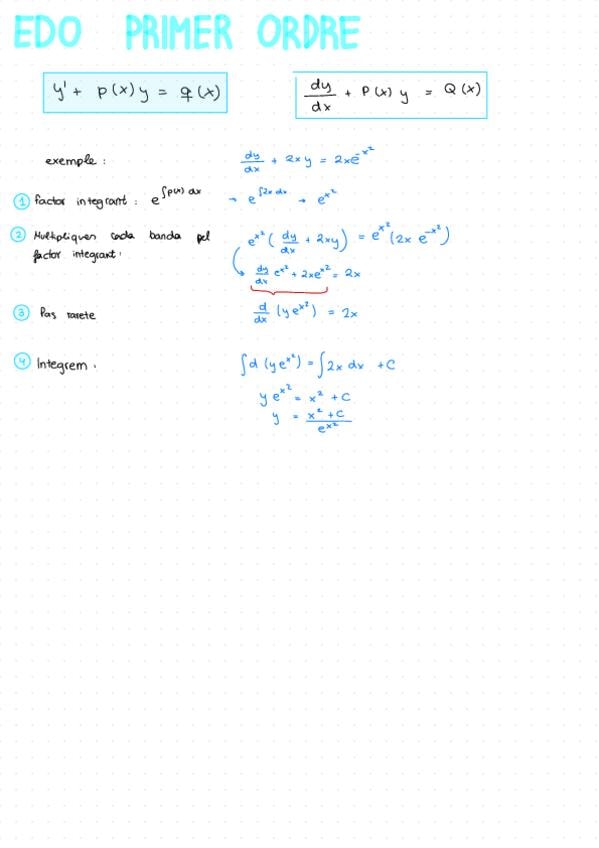 EDO PRIMER ORDRE
y' + p(x) y = q(x)
dy/dx + P(x) y = Q(x)
exemple : dy/dx + 2xy = 2xe^-x²
① factor integrant : e^∫p(x) dx → e^∫2x dx → e^x²
② Multipliques cada banda pel e^x² ( dy/dx + 2xy ) = e^x² (2x e^-x²)
factor integrant.
dy/dx e^x² + 2xe^x² = 2x
③ Pas rarete d/dx (y e^x²) = 2x
④ Integrem. ∫d (y e^x²) = ∫2x dx + C
y e^x² = x² + C
y = x² + C / e^x²